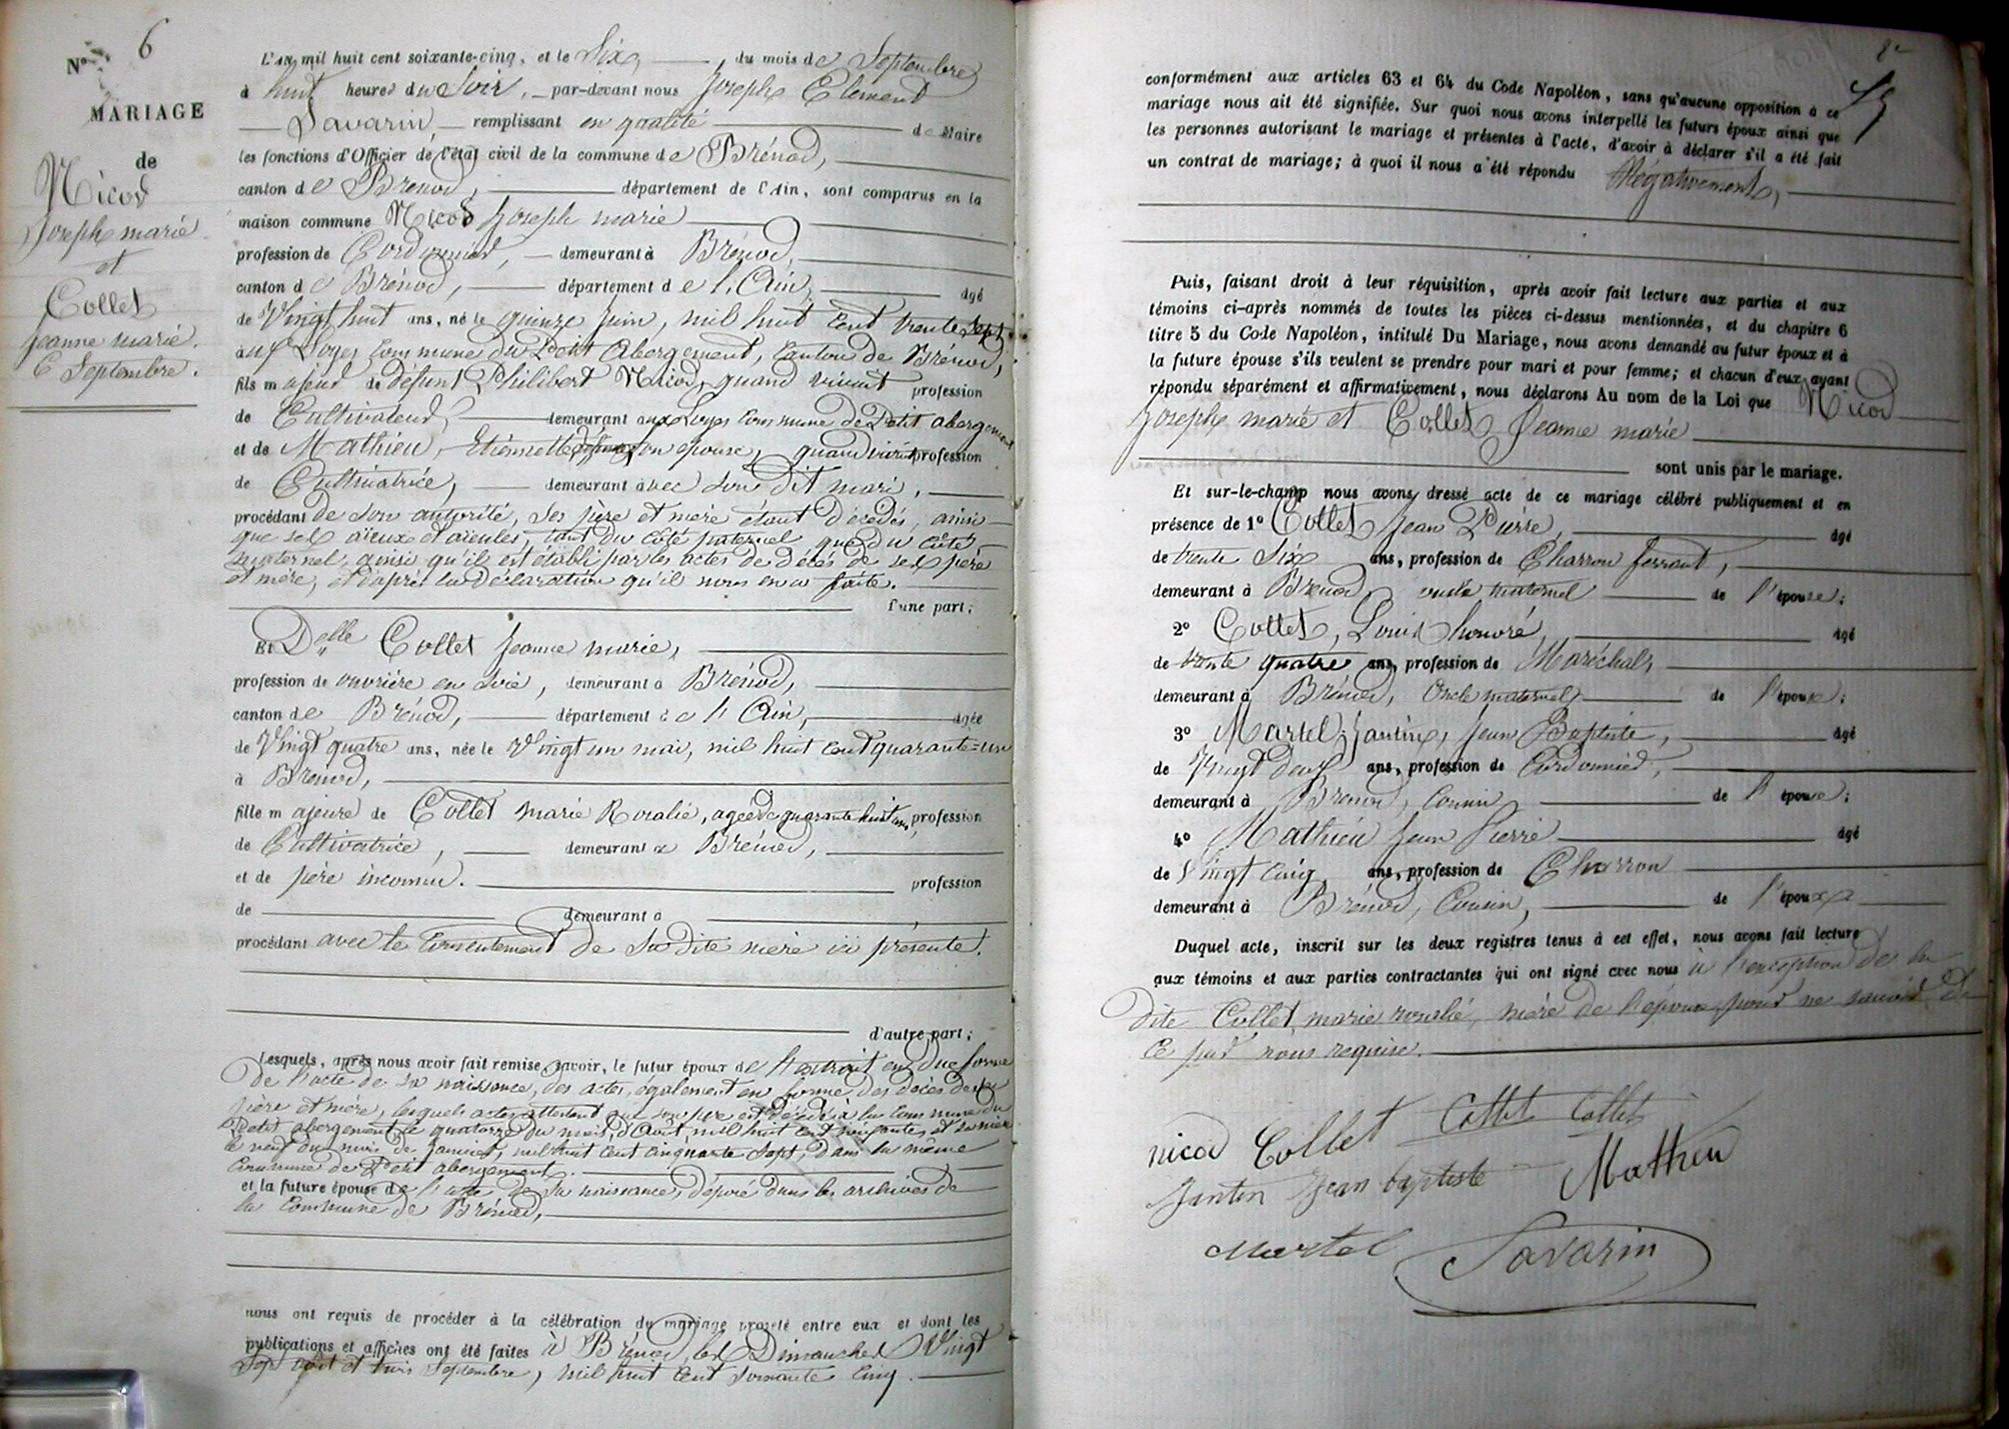 N° 6
MARIAGE
de
Nicod
Joseph marie
et
Collet
Jeanne marie.
6 Septembre.
L'an mil huit cent soixante-cinq, et le Six, du mois de Septembre
à huit heures du Soir, par-devant nous Joseph Clément
Savarin, remplissant en qualité de Maire
les fonctions d'Officier de l'état civil de la commune de Brénod,
canton de Brénod, département de l'Ain, sont comparus en la
maison commune Nicod Joseph marie
profession de Cordonnier, demeurant à Brénod,
canton de Brénod, département de l'Ain, âgé
de Vingt huit ans, né le quinze juin, mil huit cent trente sept
aux Loyes Commune du Petit Abergement, Canton de Brénod,
fils majeur de défunt Philibert Nicod, quand vivait profession
de Cultivateur, demeurant aux Loyes Commune de Petit abergement
et de Mathieu, Etiennette son épouse, quand vivait profession
de Cultivatrice, demeurant avec son dit mari,
procédant de son autorité, ses père et mère étant décédés, ainsi
que ses aïeux et aïeules, tant du côté paternel que du côté
maternel, ainsi qu'il est établi par les actes de décès de ses père
et mère, et d'après la déclaration qu'il nous en a faite.
d'une part;
Et Delle Collet Jeanne marie,
profession de ouvrière en soie, demeurant à Brénod,
canton de Brénod, département de l'Ain, âgée
de Vingt quatre ans, née le Vingt un mai, mil huit cent quarante=un
à Brénod,
fille majeure de Collet marie Rosalie, agée de quarante huit ans, profession
de Cultivatrice, demeurant à Brénod,
et de père inconnu. profession
de demeurant à
procédant avec le Consentement de sa dite mère ici présente.
d'autre part;
Lesquels, après nous avoir fait remise, savoir, le futur époux de l'extrait en due forme
de l'acte de sa naissance, des actes également en forme des décès de ses
père et mère, lesquels actes attestent que son père est décédé à la Commune du
Petit abergement le quatorze du mois d'Août, mil huit cent soixante, et sa mère
le neuf du mois de Janvier, mil huit cent cinquante sept, dans la même
Commune de Petit abergement.
et la future épouse de l'acte de sa naissance, déposé dans les archives de
la Commune de Brénod,
nous ont requis de procéder à la célébration du mariage projeté entre eux et dont les
publications et affiches ont été faites à Brénod, les Dimanches Vingt
Sept août et trois Septembre, mil huit cent soixante cinq.
conformément aux articles 63 et 64 du Code Napoléon, sans qu'aucune opposition à ce
mariage nous ait été signifiée. Sur quoi nous avons interpellé les futurs époux ainsi que
les personnes autorisant le mariage et présentes à l'acte, d'avoir à déclarer s'il a été fait
un contrat de mariage; à quoi il nous a été répondu Négativement,
Puis, faisant droit à leur réquisition, après avoir fait lecture aux parties et aux
témoins ci-après nommés de toutes les pièces ci-dessus mentionnées, et du chapitre 6
titre 5 du Code Napoléon, intitulé Du Mariage, nous avons demandé au futur époux et à
la future épouse s'ils veulent se prendre pour mari et pour femme; et chacun d'eux ayant
répondu séparément et affirmativement, nous déclarons Au nom de la Loi que Nicod
Joseph marie et Collet Jeanne marie
sont unis par le mariage.
Et sur-le-champ nous avons dressé acte de ce mariage célébré publiquement et en
présence de 1° Collet Jean Pierre, âgé
de trente Six ans, profession de Charron ferrant,
demeurant à Brénod, oncle maternel de l'épouse;
2° Collet, Louis honoré, âgé
de trente quatre ans, profession de Maréchal,
demeurant à Brénod, Oncle maternel de l'épouse;
3° Martel; Jantin, Jean Baptiste, âgé
de Vingt Deux ans, profession de Cordonnier,
demeurant à Brénod, Cousin de l'épouse;
4° Mathieu Jean Pierre âgé
de Vingt cinq ans, profession de Charron
demeurant à Brénod, Cousin, de l'époux
Duquel acte, inscrit sur les deux registres tenus à cet effet, nous avons fait lecture
aux témoins et aux parties contractantes qui ont signé avec nous à l'exception de la
dite Collet, marie rosalie, mère de l'épouse, pour ne savoir de
ce par nous requise.
nicod Collet Collet Collet
Jantin Jean baptiste Mathieu
Martel Savarin